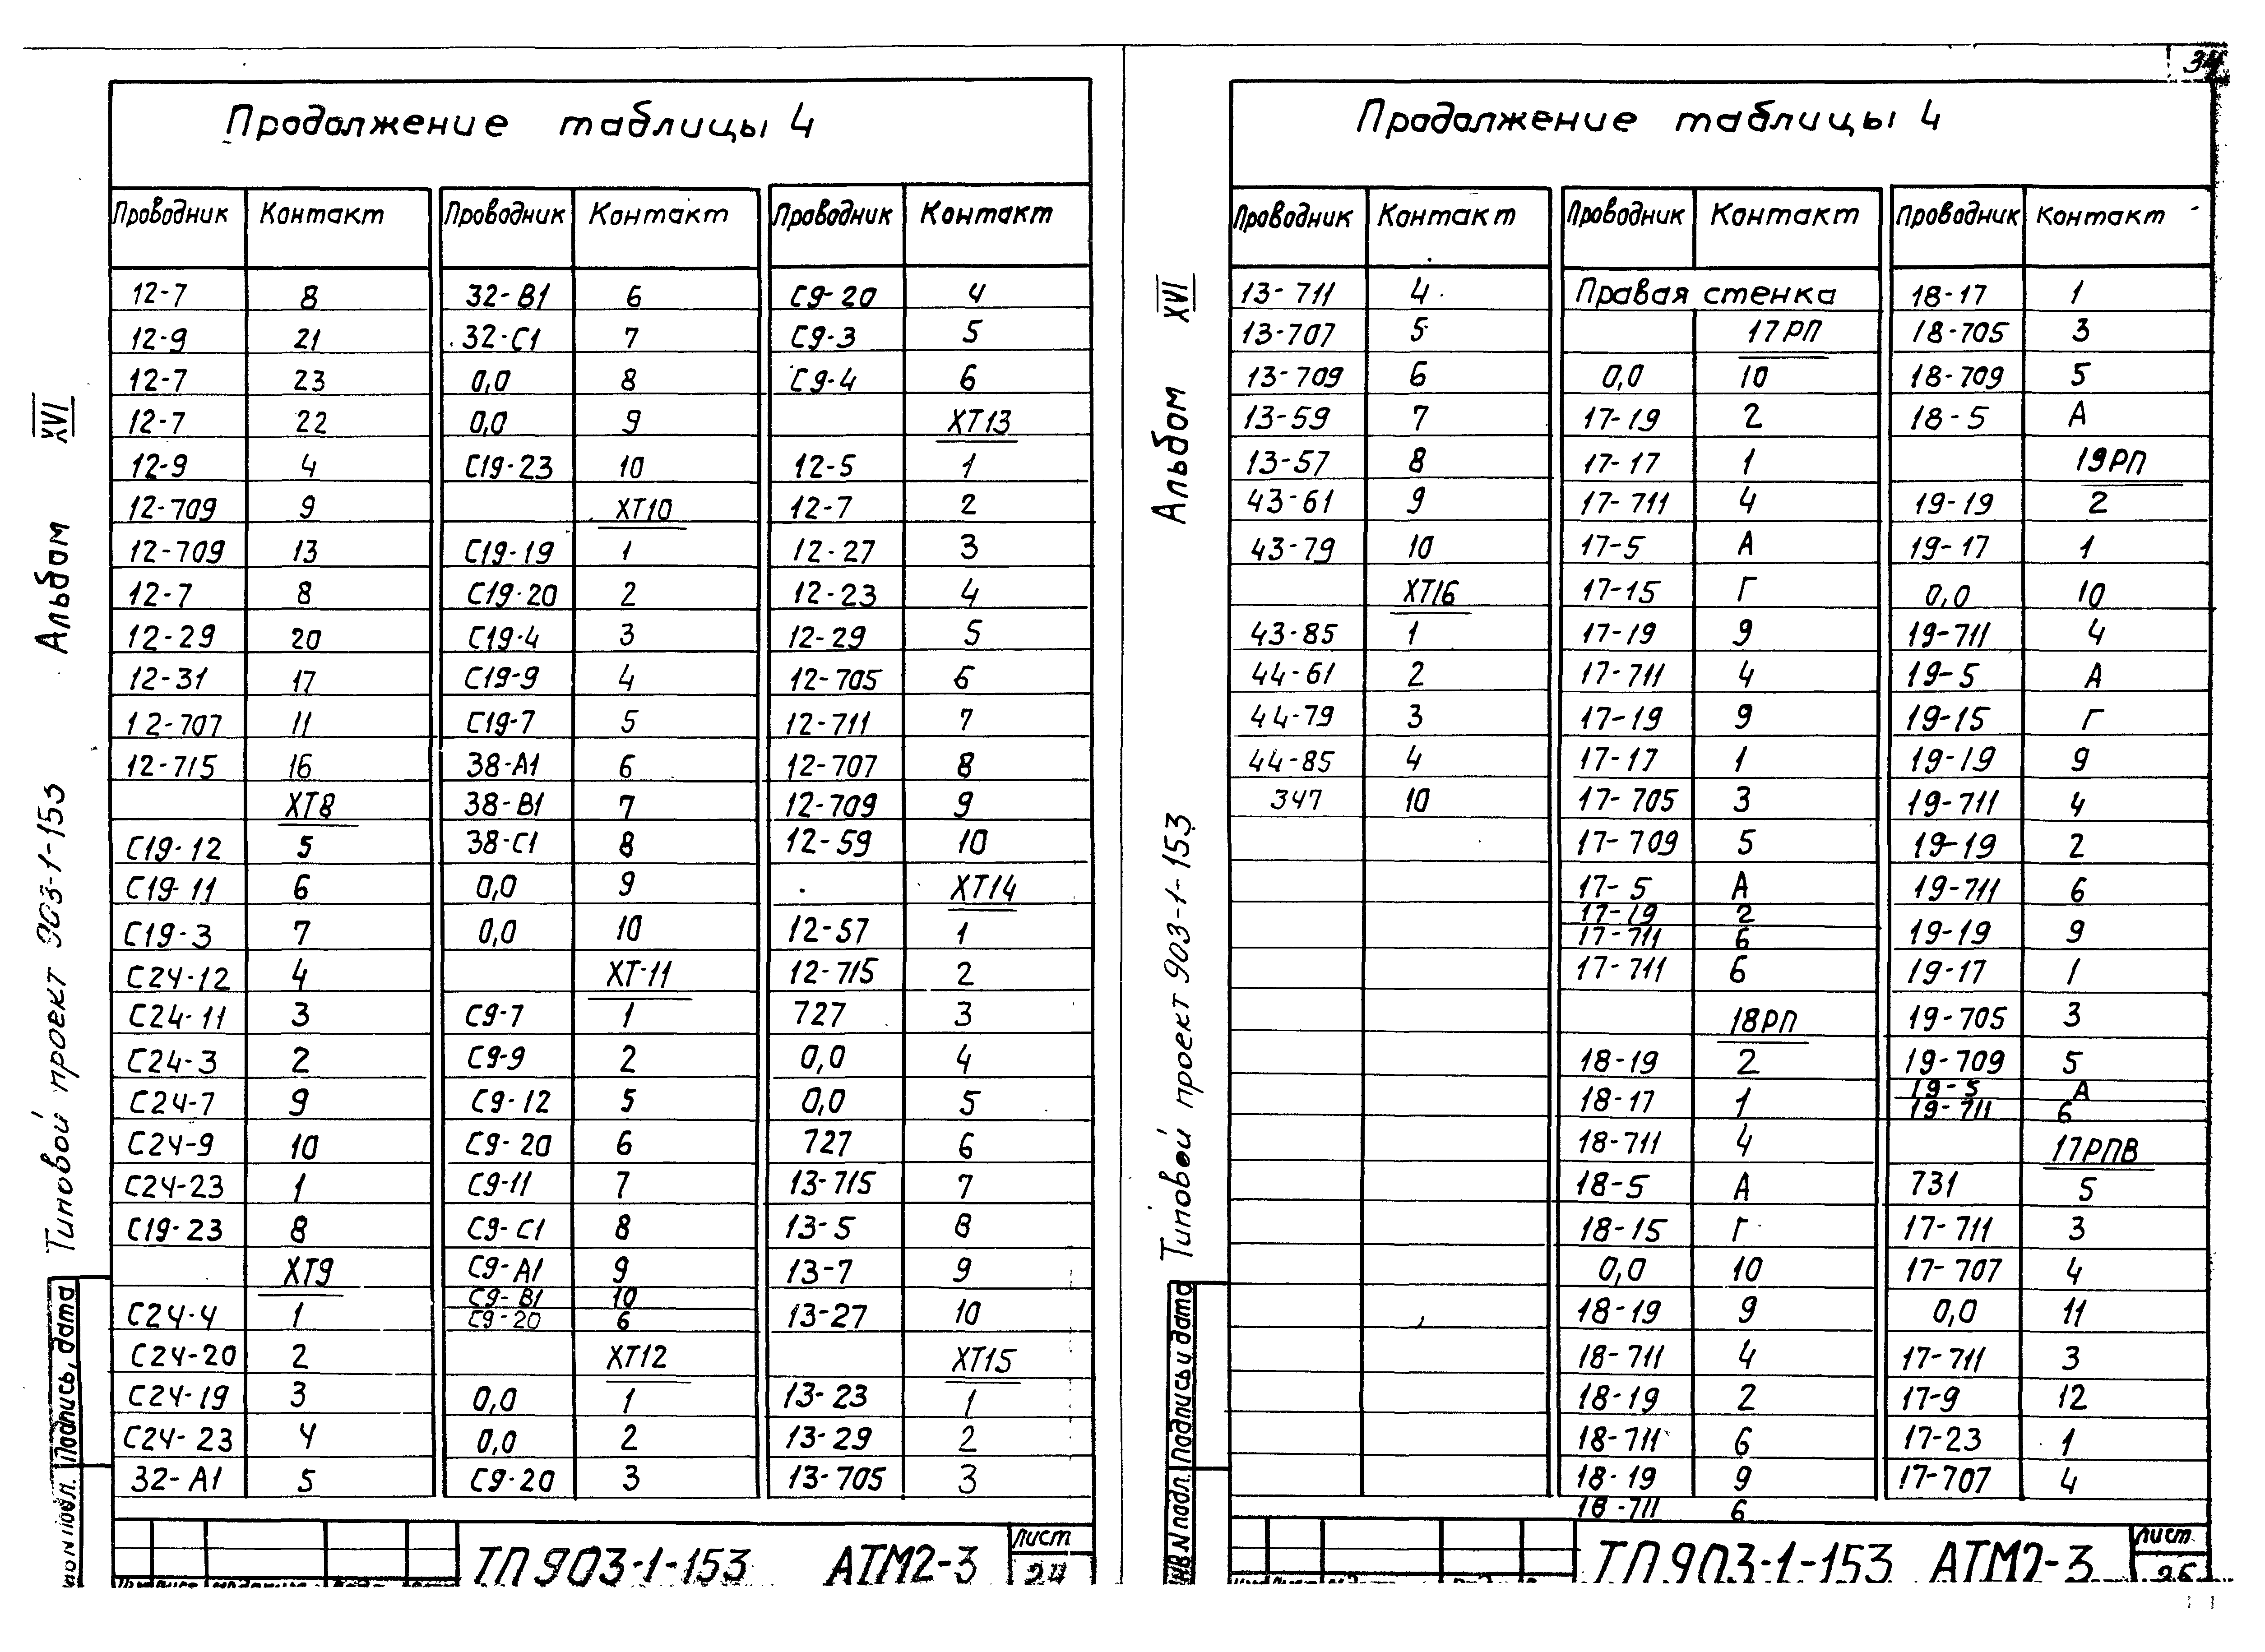 34
Продолжение таблицы 4
Проводник Контакт
12-7 8
12-9 21
12-7 23
12-7 22
12-9 4
12-709 9
12-709 13
12-7 8
12-29 20
12-31 17
12-707 11
12-715 16
ХТ8
С19-12 5
С19-11 6
С19-3 7
С24-12 4
С24-11 3
С24-3 2
С24-7 9
С24-9 10
С24-23 1
С19-23 8
ХТ9
С24-4 1
С24-20 2
С24-19 3
С24-23 4
32-А1 5
Проводник Контакт
32-В1 6
32-С1 7
0,0 8
0,0 9
С19-23 10
ХТ10
С19-19 1
С19-20 2
С19-4 3
С19-9 4
С19-7 5
38-А1 6
38-В1 7
38-С1 8
0,0 9
0,0 10
ХТ-11
С9-7 1
С9-9 2
С9-12 5
С9-20 6
С9-11 7
С9-С1 8
С9-А1 9
С9-В1 10
С9-20 6
ХТ12
0,0 1
0,0 2
С9-20 3
Проводник Контакт
С9-20 4
С9-3 5
С9-4 6
ХТ13
12-5 1
12-7 2
12-27 3
12-23 4
12-29 5
12-705 6
12-711 7
12-707 8
12-709 9
12-59 10
ХТ14
12-57 1
12-715 2
727 3
0,0 4
0,0 5
727 6
13-715 7
13-5 8
13-7 9
13-27 10
ХТ15
13-23 1
13-29 2
13-705 3
Альбом XVI
Типовой проект 903-1-153
Подпись, дата
подл.
ТП 903-1-153 АТМ2-3
Лист
Продолжение таблицы 4
Проводник Контакт
13-711 4
13-707 5
13-709 6
13-59 7
13-57 8
43-61 9
43-79 10
ХТ16
43-85 1
44-61 2
44-79 3
44-85 4
347 10
Проводник Контакт
Правая стенка
17РП
0,0 10
17-19 2
17-17 1
17-711 4
17-5 А
17-15 Г
17-19 9
17-711 4
17-19 9
17-17 1
17-705 3
17-709 5
17-5 А
17-19 2
17-711 6
17-711 6
18РП
18-19 2
18-17 1
18-711 4
18-5 А
18-15 Г
0,0 10
18-19 9
18-711 4
18-19 2
18-711 6
18-19 9
18-711 6
Проводник Контакт
18-17 1
18-705 3
18-709 5
18-5 А
19РП
19-19 2
19-17 1
0,0 10
19-711 4
19-5 А
19-15 Г
19-19 9
19-711 4
19-19 2
19-711 6
19-19 9
19-17 1
19-705 3
19-709 5
19-5 А
19-711 6
17РПВ
731 5
17-711 3
17-707 4
0,0 11
17-711 3
17-9 12
17-23 1
17-707 4
Альбом XVI
Типовой проект 903-1-153
Подпись и дата
Инв.N подл.
ТП 903-1-153 АТМ2-3
Лист